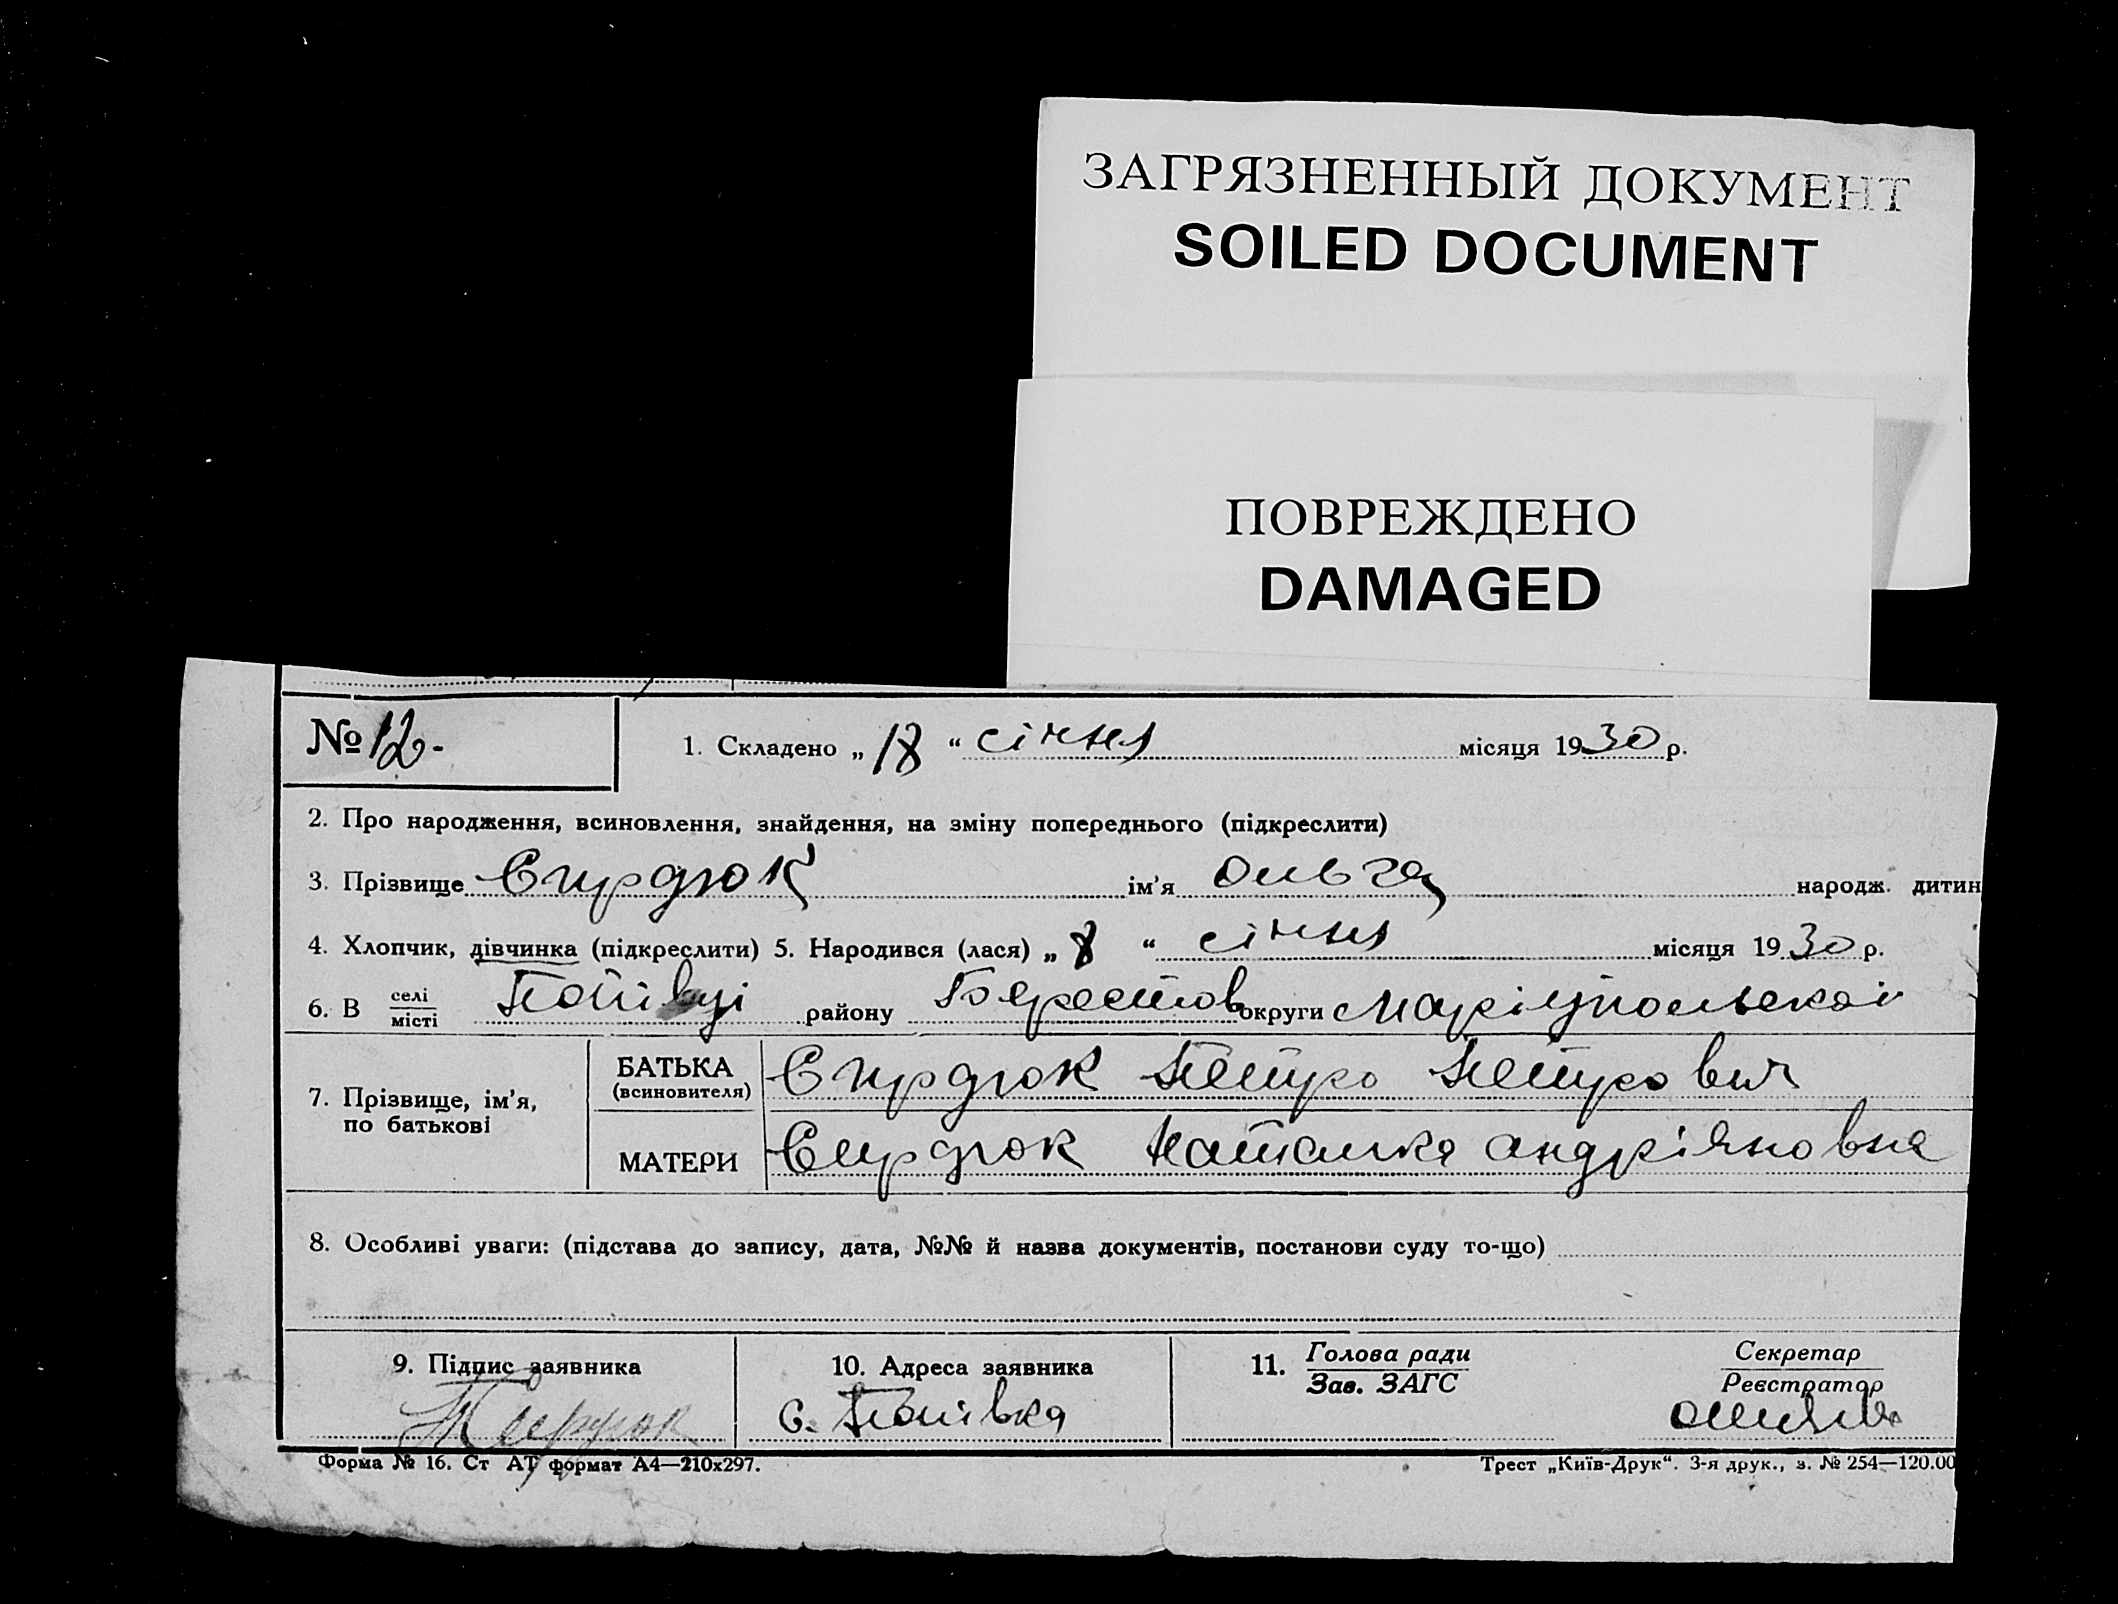 ЗАГРЯЗНЕННЫЙ ДОКУМЕНТ
SOILED DOCUMENT
ПОВРЕЖДЕНО
DAMAGED
№ 12.
1. Складено „ 18 “ січня місяця 1930 р.
2. Про народження, всиновлення, знайдення, на зміну попереднього (підкреслити)
3. Прізвище Спирдюк ім'я Ольга народж. дитин
4. Хлопчик, дівчинка (підкреслити) 5. Народився (лася) „ 8 “ січня місяця 1930 р.
6. В селі місті Попівці району округи Маріупольскаї
7. Прізвище, ім'я, по батькові
БАТЬКА (всиновителя) Спирдюк Петро Петрович
МАТЕРИ Спирдюк Наталка Андріяновна
8. Особливі уваги: (підстава до запису, дата, №№ й назва документів, постанови суду то-що)
9. Підпис заявника
10. Адреса заявника
с. Попівка
11. Голова ради Зав. ЗАГС
Секретар Реєстратор
Форма № 16. Ст АТ формат А4—210х297.
Трест „Київ-Друк“. 3-я друк., з. № 254—120.00